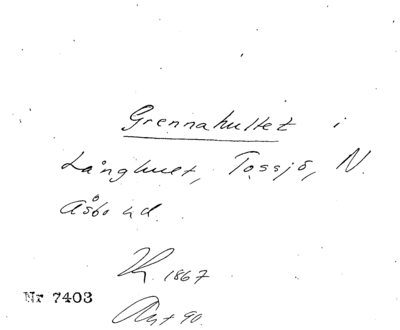 Grennahultet i
Långhult, Tossjö, N.
Åsbo hd.
1867
Nr 7403
90.